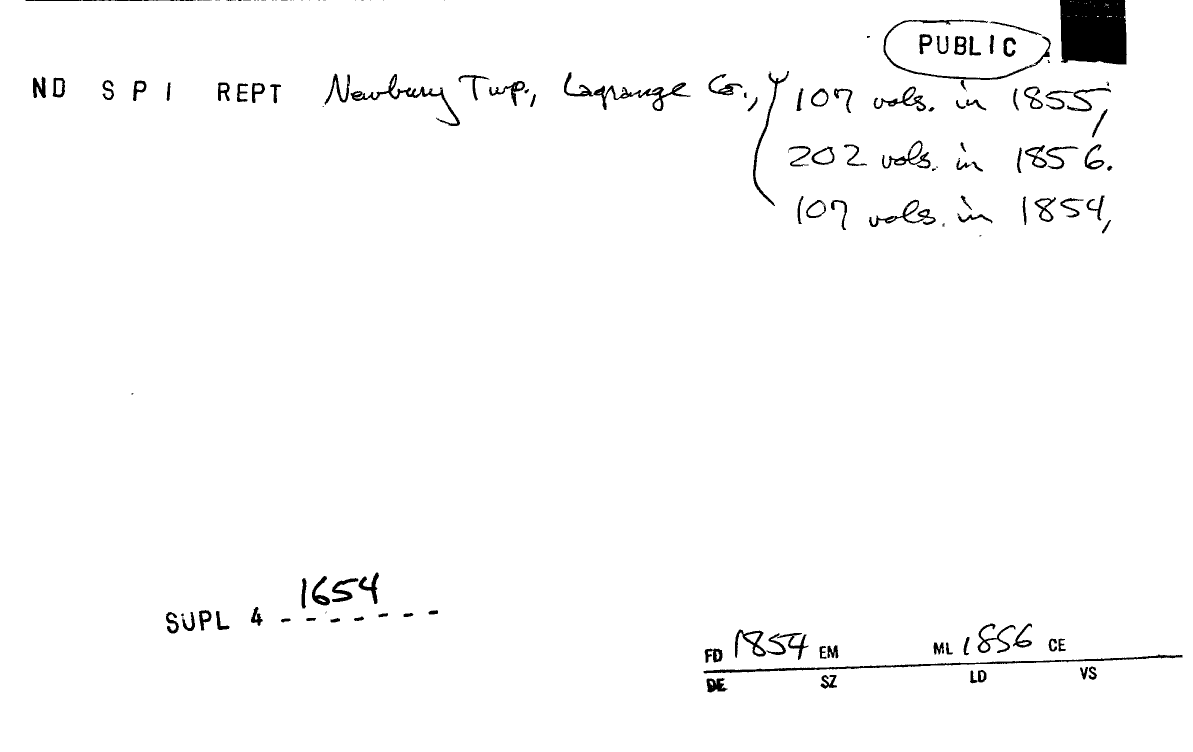 PUBLIC
ND S P I REPT Newbury Twp., Lagrange Co., 107 vols. in 1855,
202 vols. in 1856.
107 vols. in 1854,
SUPL 4 - - - - - - - 1654
FD 1854 EM ML 1856 CE
DE SZ LD VS